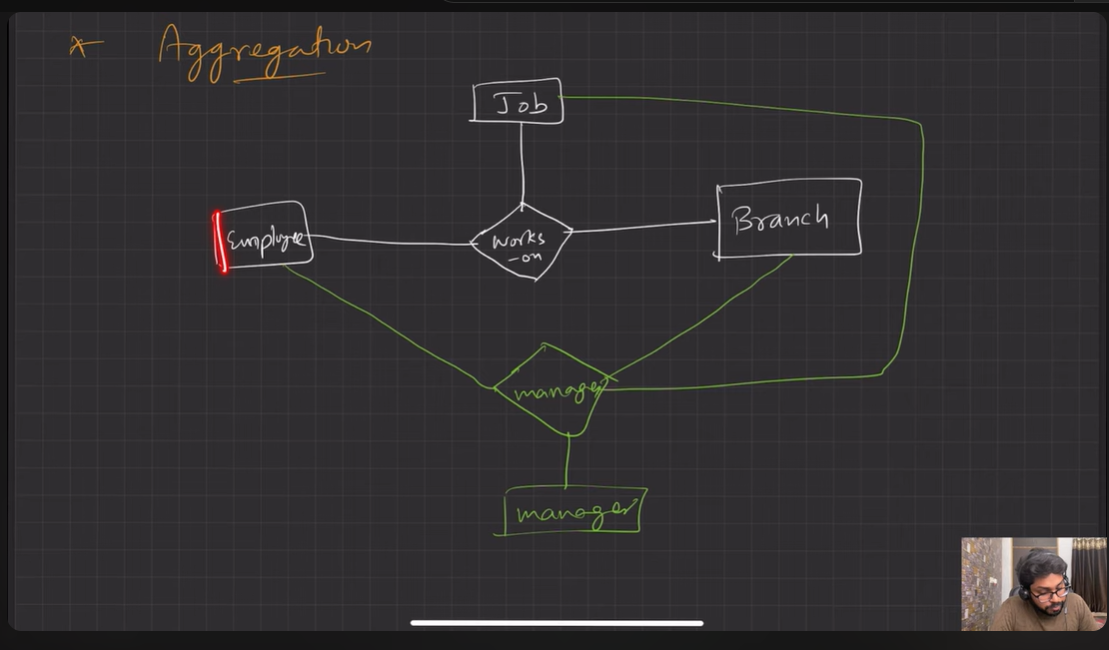 * Aggregation
Job
Employee
works
-on
Branch
manages
manager